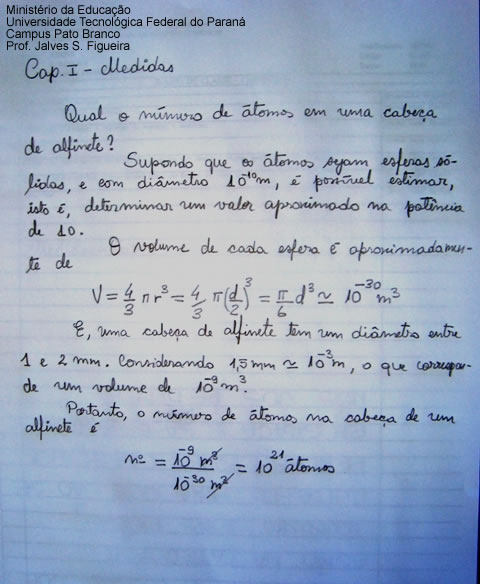 Ministério da Educação
Universidade Tecnológica Federal do Paraná
Campus Pato Branco
Prof. Jalves S. Figueira
Cap. I - Medidas
Qual o número de átomos em uma cabeça
de alfinete?
Supondo que os átomos sejam esferas só-
lidas, e com diâmetro 10⁻¹⁰m, é possível estimar,
isto é, determinar um valor aproximado na potência
de 10.
O volume de cada esfera é aproximadamen-
te de
V = 4/3 π r³ = 4/3 π(d/2)³ = π/6 d³ ≃ 10⁻³⁰ m³
E, uma cabeça de alfinete tem um diâmetro entre
1 e 2 mm. Considerando 1,5 mm ≃ 10⁻³m, o que correspon-
de um volume de 10⁻⁹ m³.
Portanto, o número de átomos na cabeça de um
alfinete é
nº = 10⁻⁹ m³ / 10⁻³⁰ m³ = 10²¹ átomos